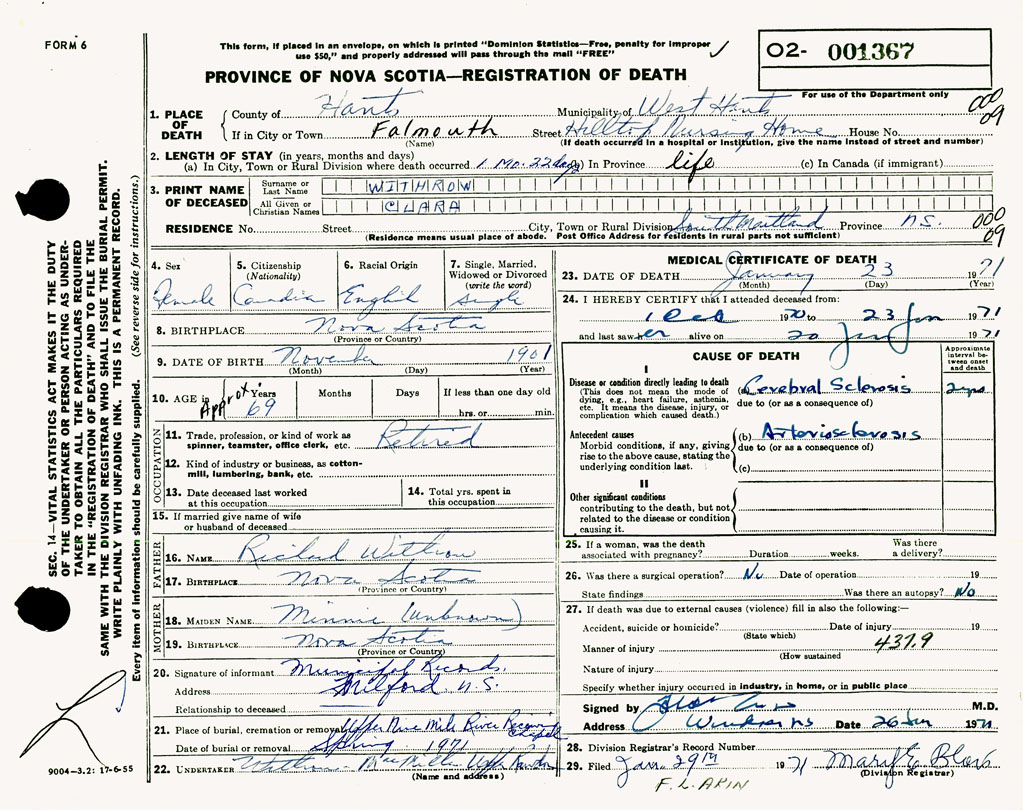 FORM 6
This form, if placed in an envelope, on which is printed "Dominion Statistics—Free, penalty for improper
use $50," and properly addressed will pass through the mail "FREE"
O2- 001367
For use of the Department only
PROVINCE OF NOVA SCOTIA—REGISTRATION OF DEATH
000
09
1. PLACE OF DEATH
County of Hants Municipality of West Hants
If in City or Town Falmouth Street Hilltop Nursing Home House No.
(Name) (If death occurred in a hospital or institution, give the name instead of street and number)
2. LENGTH OF STAY (in years, months and days)
(a) In City, Town or Rural Division where death occurred 1 Mo. 22 days (b) In Province life (c) In Canada (if immigrant)
3. PRINT NAME OF DECEASED
Surname or Last Name WITHROW
All Given or Christian Names CLARA
RESIDENCE No. Street City, Town or Rural Division South Maitland Province N.S.
(Residence means usual place of abode. Post Office Address for residents in rural parts not sufficient)
000
09
4. Sex Female
5. Citizenship (Nationality) Canadian
6. Racial Origin English
7. Single, Married, Widowed or Divorced (write the word) Single
8. BIRTHPLACE Nova Scotia
(Province or Country)
9. DATE OF BIRTH November 1901
(Month) (Day) (Year)
10. AGE in Approx. Years 69 Months Days If less than one day old
hrs. or min.
OCCUPATION
11. Trade, profession, or kind of work as
spinner, teamster, office clerk, etc. Retired
12. Kind of industry or business, as cotton-
mill, lumbering, bank, etc.
13. Date deceased last worked
at this occupation
14. Total yrs. spent in
this occupation
15. If married give name of wife
or husband of deceased
FATHER
16. NAME Richard Withrow
17. BIRTHPLACE Nova Scotia
(Province or Country)
MOTHER
18. MAIDEN NAME Minnie (unknown)
19. BIRTHPLACE Nova Scotia
(Province or Country)
20. Signature of informant Municipal Records.
Address Milford N.S.
Relationship to deceased
21. Place of burial, cremation or removal Upper Nine Mile River Receiving Chapel
Date of burial or removal Spring 1971
22. UNDERTAKER
(Name and address)
MEDICAL CERTIFICATE OF DEATH
23. DATE OF DEATH January 23 1971
(Month) (Day) (Year)
24. I HEREBY CERTIFY that I attended deceased from:
1 Dec 1970 to 23 Jan 1971
and last saw her alive on 20 Jan 1971
CAUSE OF DEATH
Approximate interval between onset and death
I
Disease or condition directly leading to death
(This does not mean the mode of
dying, e.g., heart failure, asthenia,
etc. It means the disease, injury, or
complication which caused death.)
(a) Cerebral Sclerosis 2 yrs
due to (or as a consequence of)
Antecedent causes
Morbid conditions, if any, giving
rise to the above cause, stating the
underlying condition last.
(b) Arteriosclerosis
due to (or as a consequence of)
(c)
II
Other significant conditions
contributing to the death, but not
related to the disease or condition
causing it.
25. If a woman, was the death
associated with pregnancy? Duration weeks. Was there
a delivery?
26. Was there a surgical operation? No Date of operation 19
State findings Was there an autopsy? No
27. If death was due to external causes (violence) fill in also the following:—
Accident, suicide or homicide? Date of injury 19
(State which)
Manner of injury 437.9
(How sustained)
Nature of injury
Specify whether injury occurred in industry, in home, or in public place
Signed by M.D.
Address Windsor NS Date 26 Jan 1971
28. Division Registrar's Record Number
29. Filed Jan. 29TH 1971
(Division Registrar)
F. L. AKIN
SEC. 14—VITAL STATISTICS ACT MAKES IT THE DUTY
OF THE UNDERTAKER OR PERSON ACTING AS UNDER-
TAKER TO OBTAIN ALL THE PARTICULARS REQUIRED
IN THE "REGISTRATION OF DEATH" AND TO FILE THE
SAME WITH THE DIVISION REGISTRAR WHO SHALL ISSUE THE BURIAL PERMIT.
WRITE PLAINLY WITH UNFADING INK. THIS IS A PERMANENT RECORD.
Every item of information should be carefully supplied. (See reverse side for instructions.)
9004—3.2: 17-6-55